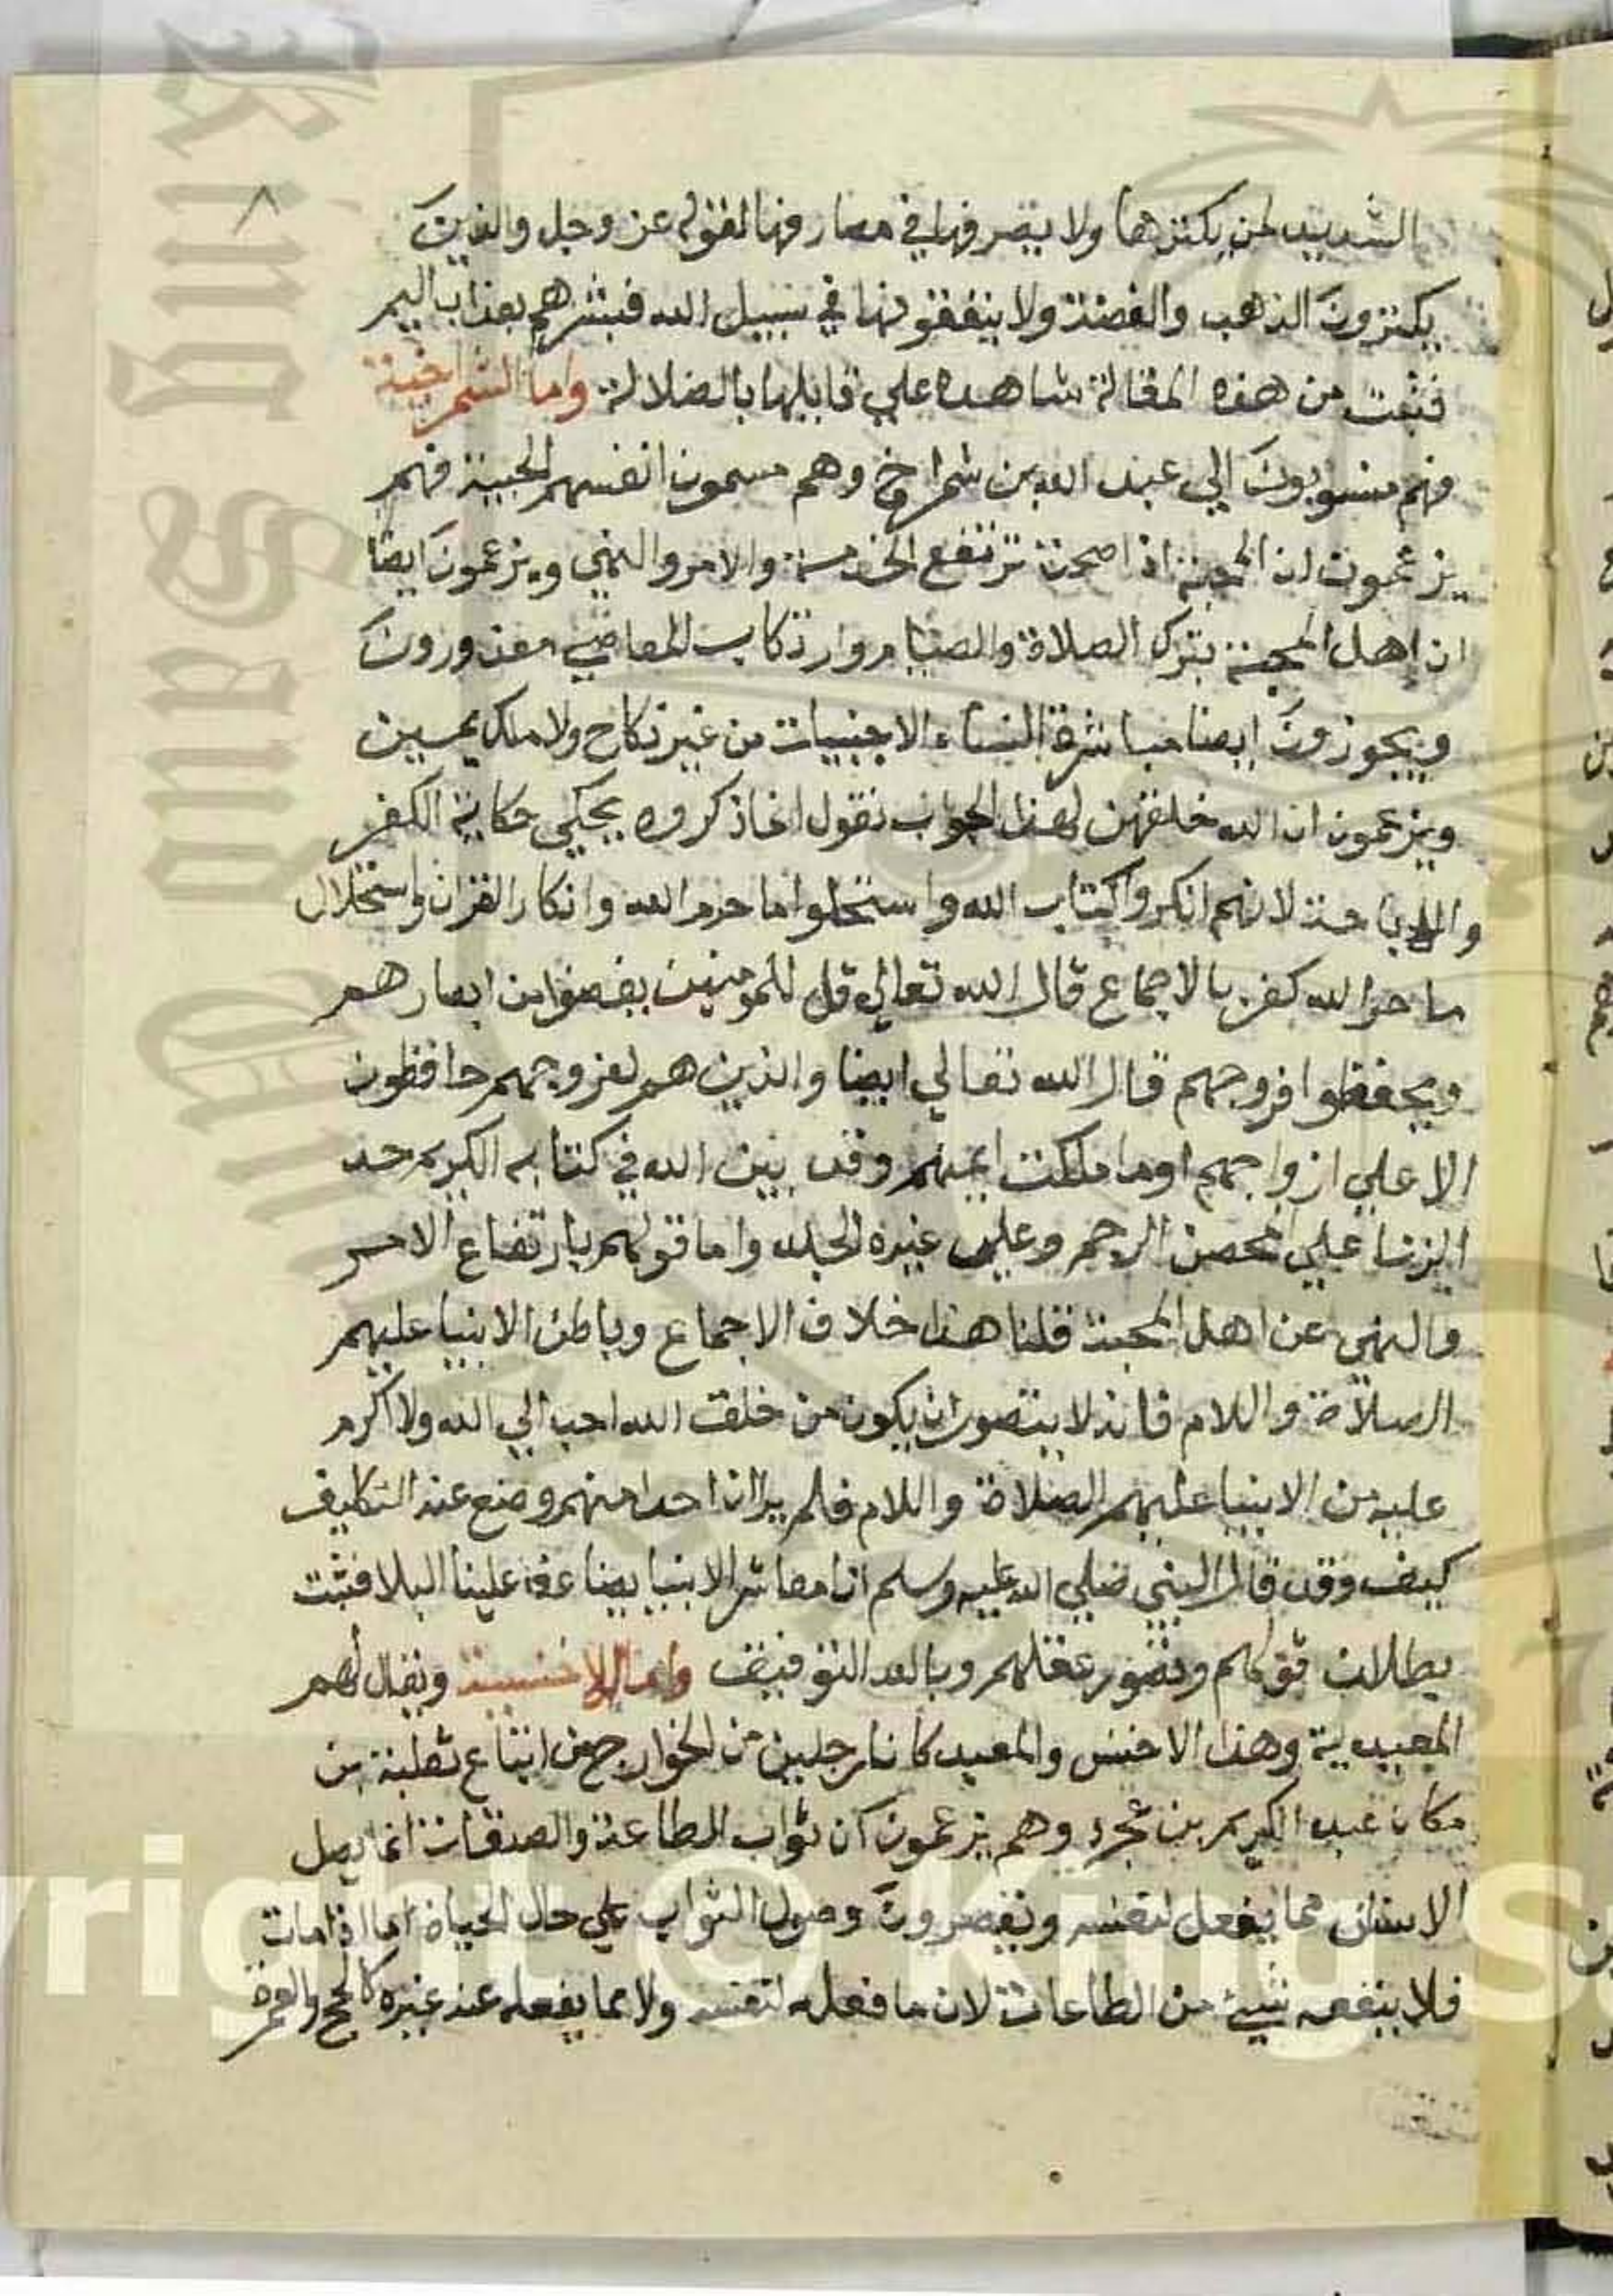 ٨
الشديد لمن يكنزها ولا يصرفها في مصارفها لقوله عز وجل والذين
يكنزون الذهب والفضة ولا ينفقونها في سبيل الله فبشرهم بعذاب اليم
فثبت من هذه المقالة شاهدة علي قايلها بالضلالة واما الشمراخية
فهم منسوبون الي عبد الله بن شمراخ وهم مسمون انفسهم المحبية فهم
يزعمون ان المحبة اذا صحت ترتفع الخدمة والامر والنهي ويزعمون ايضا
ان اهل المحبة بترك الصلاة والصيام وارتكاب المعاصي معذورون
ويجوزون ايضا مباشرة النساء الاجنبيات من غير نكاح ولا ملك يمين
ويزعمون ان الله خلقهن لهذا الجواب نقول انما ذكروه يحكي حكاية الكفر
والاباحة لانهم انكروا كتاب الله واستحلوا ما حرم الله وانكار القران واستحلال
ما حرم الله كفر بالاجماع قال الله تعالي قل للمومنين يغضوا من ابصارهم
ويحفظوا فروجهم قال الله تعالي ايضا والذين هم لفروجهم حافظون
الا علي ازواجهم او ما ملكت ايمنهم وقد بين الله في كتابه الكريم حد
الزنا علي المحصن الرجم وعلي غيره الجلد واما قولهم بارتفاع الامر
والنهي عن اهل المحبة قلنا هذا خلاف الاجماع وباطن الانبيا عليهم
الصلاة واللام فانه لا يتصور ان يكون من خلق الله احب الي الله ولا اكرم
عليه من الانبيا عليهم الصلاة واللام فلم ير ان احدا منهم وضع عنه التكليف
كيف وقد قال النبي صلي الله عليه وسلم انا معاشر الانبيا يضاعف علينا البلا فثبت
بطلان قولهم وقصور عقلهم وبالله التوفيق واما الاخنسية ويقال لهم
المعبدية وهذا الاخنس والمعبد كانا رجلين من الخوارج من اتباع ثعلبة بن
مكان عبد الكريم بن عجرد وهم يزعمون ان ثواب الطاعة والصدقات انما يصل
الانسان مما يفعل لنفسه ويقصرون وصول الثواب علي حال الحياة اما اذا مات
فلا ينفعه شيئ من الطاعات لان ما فعله لنفسه ولا مما يفعله عند غيره كالحج والعمرة
King Saud Un
yright © King S